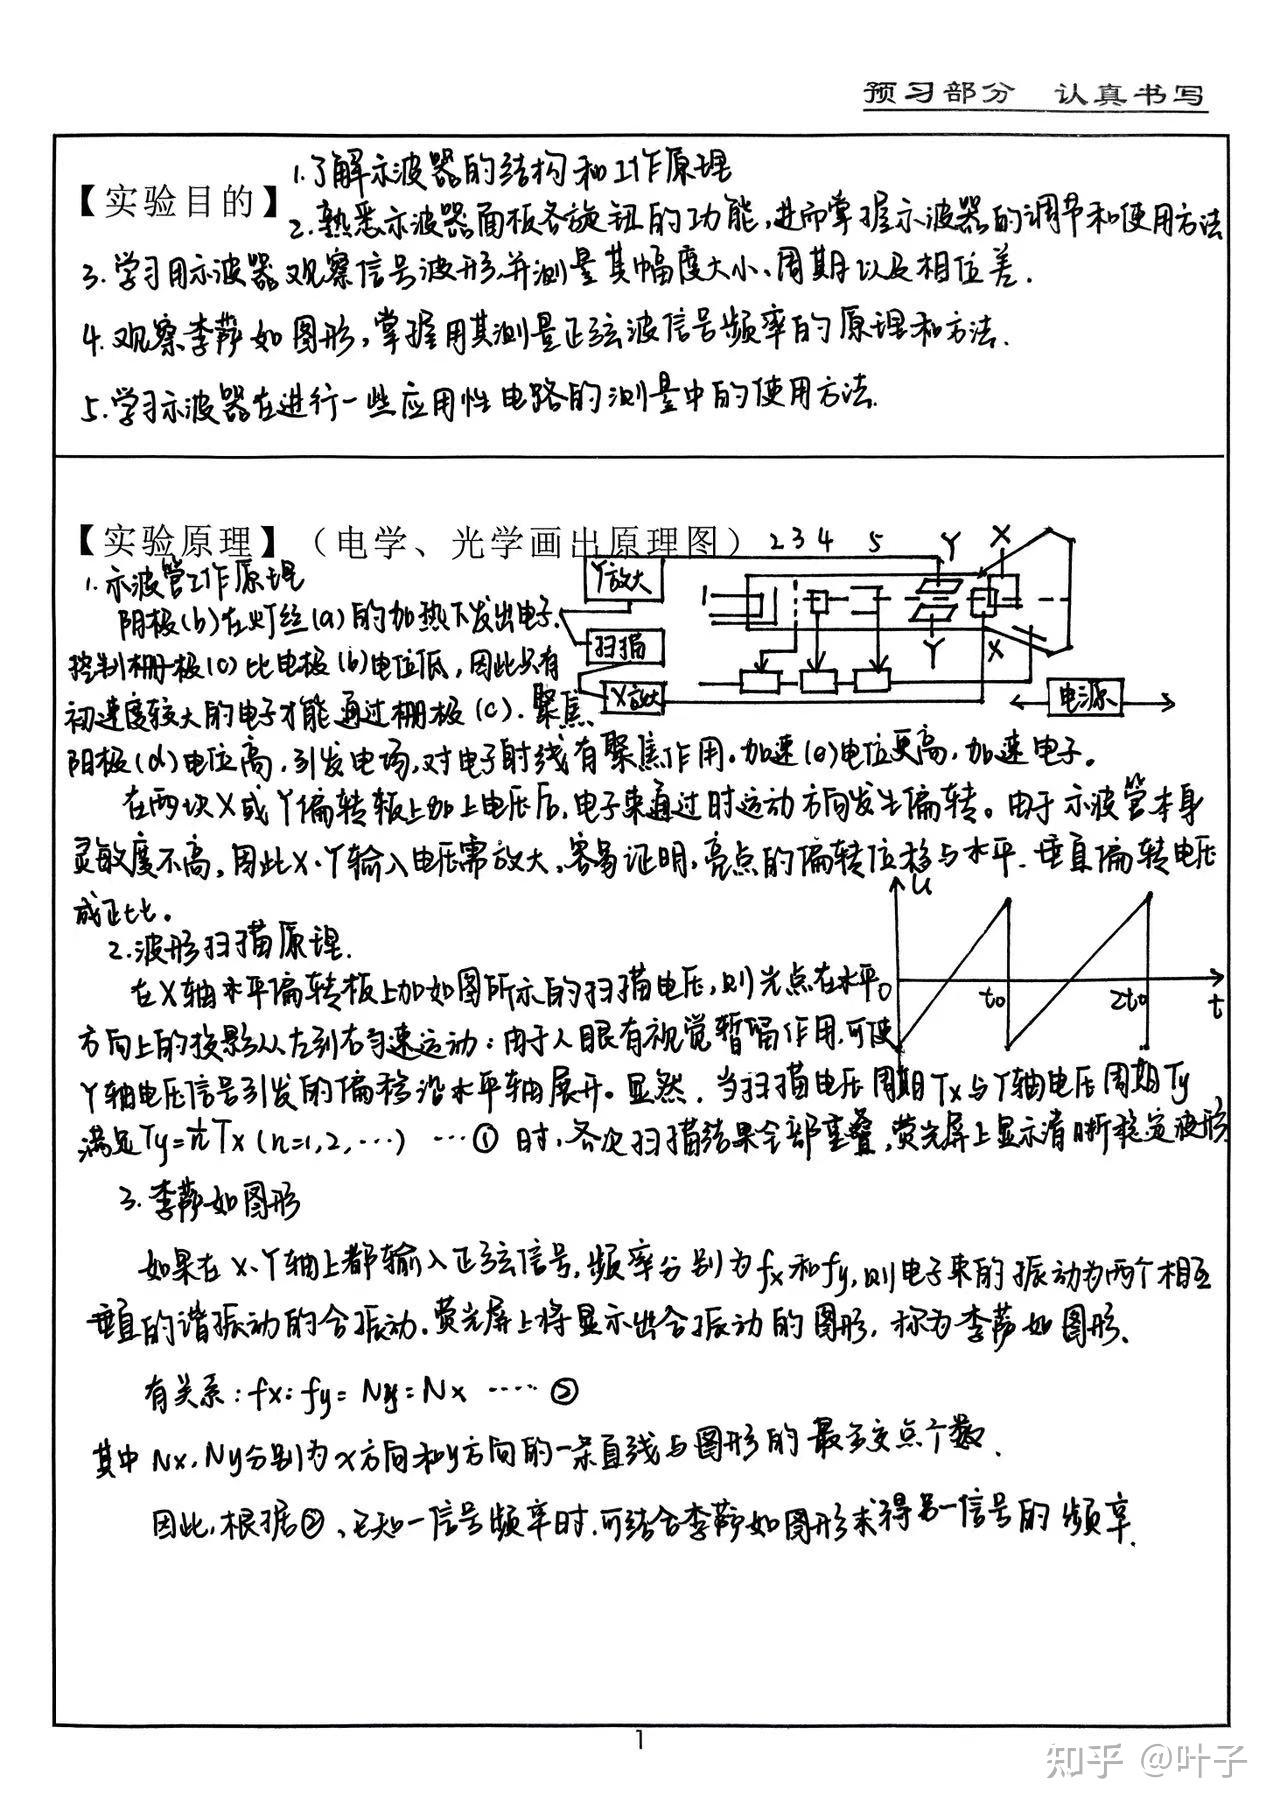 预习部分 认真书写
【实验目的】 1.了解示波器的结构和工作原理
2.熟悉示波器面板各旋钮的功能,进而掌握示波器的调节和使用方法
3.学习用示波器观察信号波形,并测量其幅度大小、周期以及相位差.
4.观察李萨如图形,掌握用其测量正弦波信号频率的原理和方法.
5.学习示波器在进行一些应用性电路的测量中的使用方法.
【实验原理】(电学、光学画出原理图)
2 3 4 5 Y X
Y放大
1
扫描
Y X
X放大
电源
1.示波管工作原理
阴极(b)在灯丝(a)的加热下发出电子.
控制栅极(c)比电极(b)电位低,因此只有
初速度较大的电子才能通过栅极(c).聚焦
阳极(d)电位高.引发电场,对电子射线有聚焦作用.加速(e)电位更高,加速电子。
在两块X或Y偏转板上加上电压后,电子束通过时运动方向发生偏转。由于示波管本身
灵敏度不高,因此X、Y输入电压需放大.容易证明,亮点的偏转位移与水平、垂直偏转电压
成正比。
u
0 t0 2t0 t
2.波形扫描原理.
在X轴水平偏转板上加如图所示的扫描电压,则光点在水平
方向上的投影从左到右匀速运动;由于人眼有视觉暂留作用,可使
Y轴电压信号引发的偏移沿水平轴展开。显然.当扫描电压周期Tx与Y轴电压周期Ty
满足Ty=1/n Tx(n=1,2,…) …①时,各次扫描结果全部重叠,荧光屏上显示清晰稳定波形
3.李萨如图形
如果在X、Y轴上都输入正弦信号,频率分别为fx和fy,则电子束的振动为两个相互
垂直的谐振动的合振动.荧光屏上将显示出合振动的图形,称为李萨如图形.
有关系:fx:fy=Ny:Nx ……②
其中Nx、Ny分别为x方向和y方向的一条直线与图形的最多交点个数.
因此,根据②、已知一信号频率时.可结合李萨如图形求得另一信号的频率.
1
知乎 @叶子